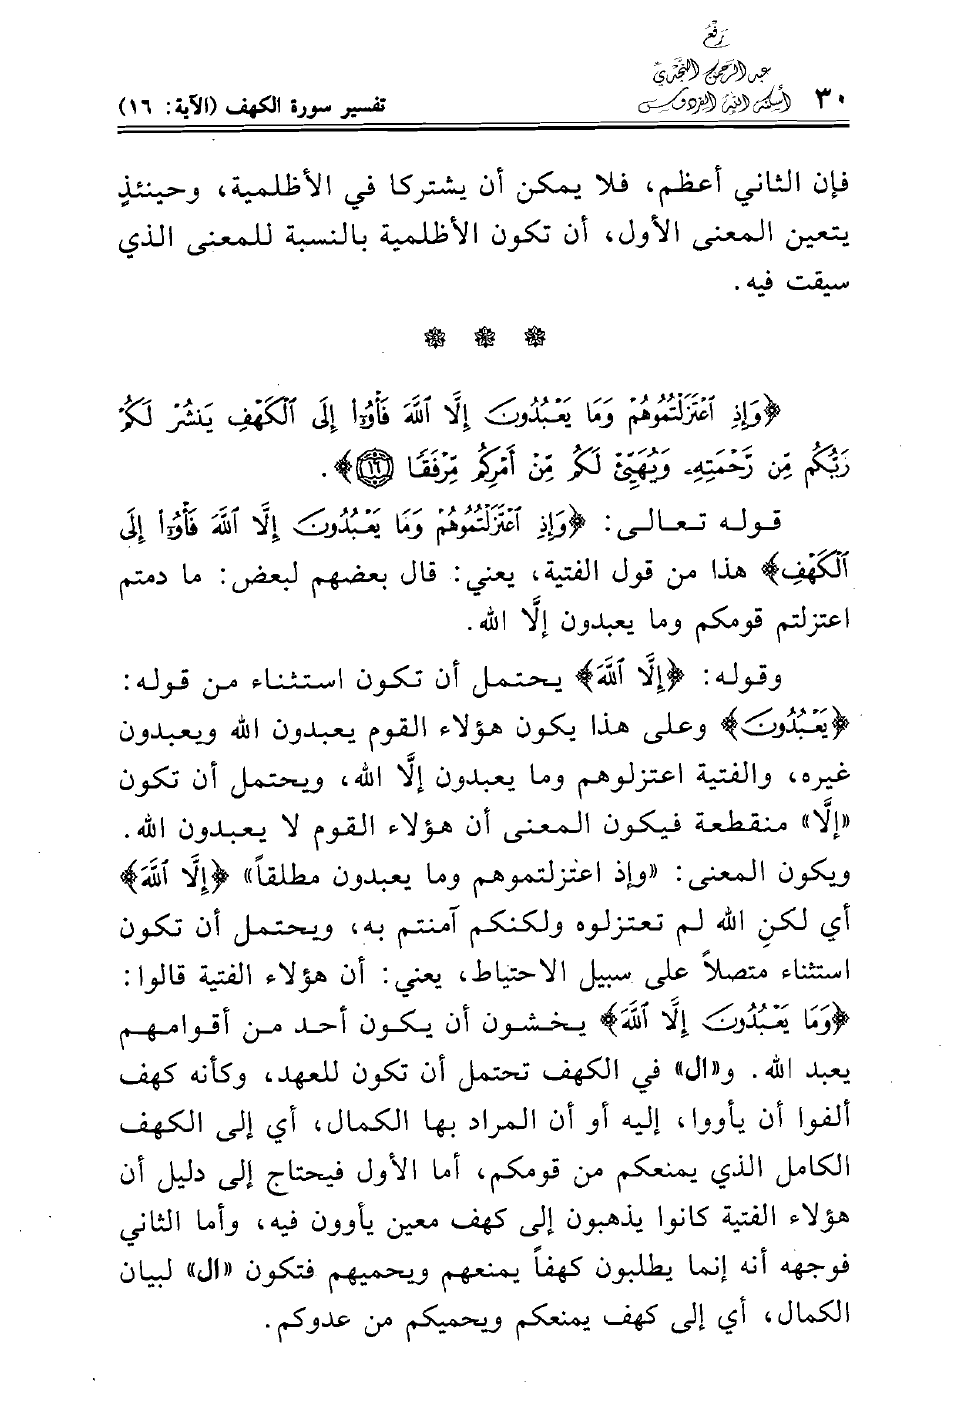 رَفْعُ
عبد الرحمن النجدي
أسكنه الله الفردوس
٣٠
تفسير سورة الكهف (الآية: ١٦)
فإن الثاني أعظم، فلا يمكن أن يشتركا في الأظلمية، وحينئذٍ
يتعين المعنى الأول، أن تكون الأظلمية بالنسبة للمعنى الذي
سيقت فيه.
﴿وَإِذِ ٱعْتَزَلْتُمُوهُمْ وَمَا يَعْبُدُونَ إِلَّا ٱللَّهَ فَأْوُۥٓا۟ إِلَى ٱلْكَهْفِ يَنشُرْ لَكُمْ
رَبُّكُم مِّن رَّحْمَتِهِۦ وَيُهَيِّئْ لَكُم مِّنْ أَمْرِكُم مِّرْفَقًا ١٦﴾.
قوله تعالى: ﴿وَإِذِ ٱعْتَزَلْتُمُوهُمْ وَمَا يَعْبُدُونَ إِلَّا ٱللَّهَ فَأْوُۥٓا۟ إِلَى
ٱلْكَهْفِ﴾ هذا من قول الفتية، يعني: قال بعضهم لبعض: ما دمتم
اعتزلتم قومكم وما يعبدون إلَّا الله.
وقوله: ﴿إِلَّا ٱللَّهَ﴾ يحتمل أن تكون استثناء من قوله:
﴿يَعْبُدُونَ﴾ وعلى هذا يكون هؤلاء القوم يعبدون الله ويعبدون
غيره، والفتية اعتزلوهم وما يعبدون إلَّا الله، ويحتمل أن تكون
«إلَّا» منقطعة فيكون المعنى أن هؤلاء القوم لا يعبدون الله.
ويكون المعنى: «وإذ اعتزلتموهم وما يعبدون مطلقاً» ﴿إِلَّا ٱللَّهَ﴾
أي لكنِ الله لم تعتزلوه ولكنكم آمنتم به، ويحتمل أن تكون
استثناء متصلاً على سبيل الاحتياط، يعني: أن هؤلاء الفتية قالوا:
﴿وَمَا يَعْبُدُونَ إِلَّا ٱللَّهَ﴾ يخشون أن يكون أحد من أقوامهم
يعبد الله. و«ال» في الكهف تحتمل أن تكون للعهد، وكأنه كهف
ألفوا أن يأووا، إليه أو أن المراد بها الكمال، أي إلى الكهف
الكامل الذي يمنعكم من قومكم، أما الأول فيحتاج إلى دليل أن
هؤلاء الفتية كانوا يذهبون إلى كهف معين يأوون فيه، وأما الثاني
فوجهه أنه إنما يطلبون كهفاً يمنعهم ويحميهم فتكون «ال» لبيان
الكمال، أي إلى كهف يمنعكم ويحميكم من عدوكم.